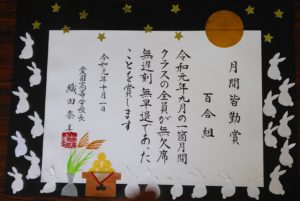 月間皆勤賞
百合組
令和元年九月の一箇月間
クラスの全員が無欠席
無遅刻無早退であった
ことを賞します
令和元年十月一日
愛国高等学校長
織田奈美